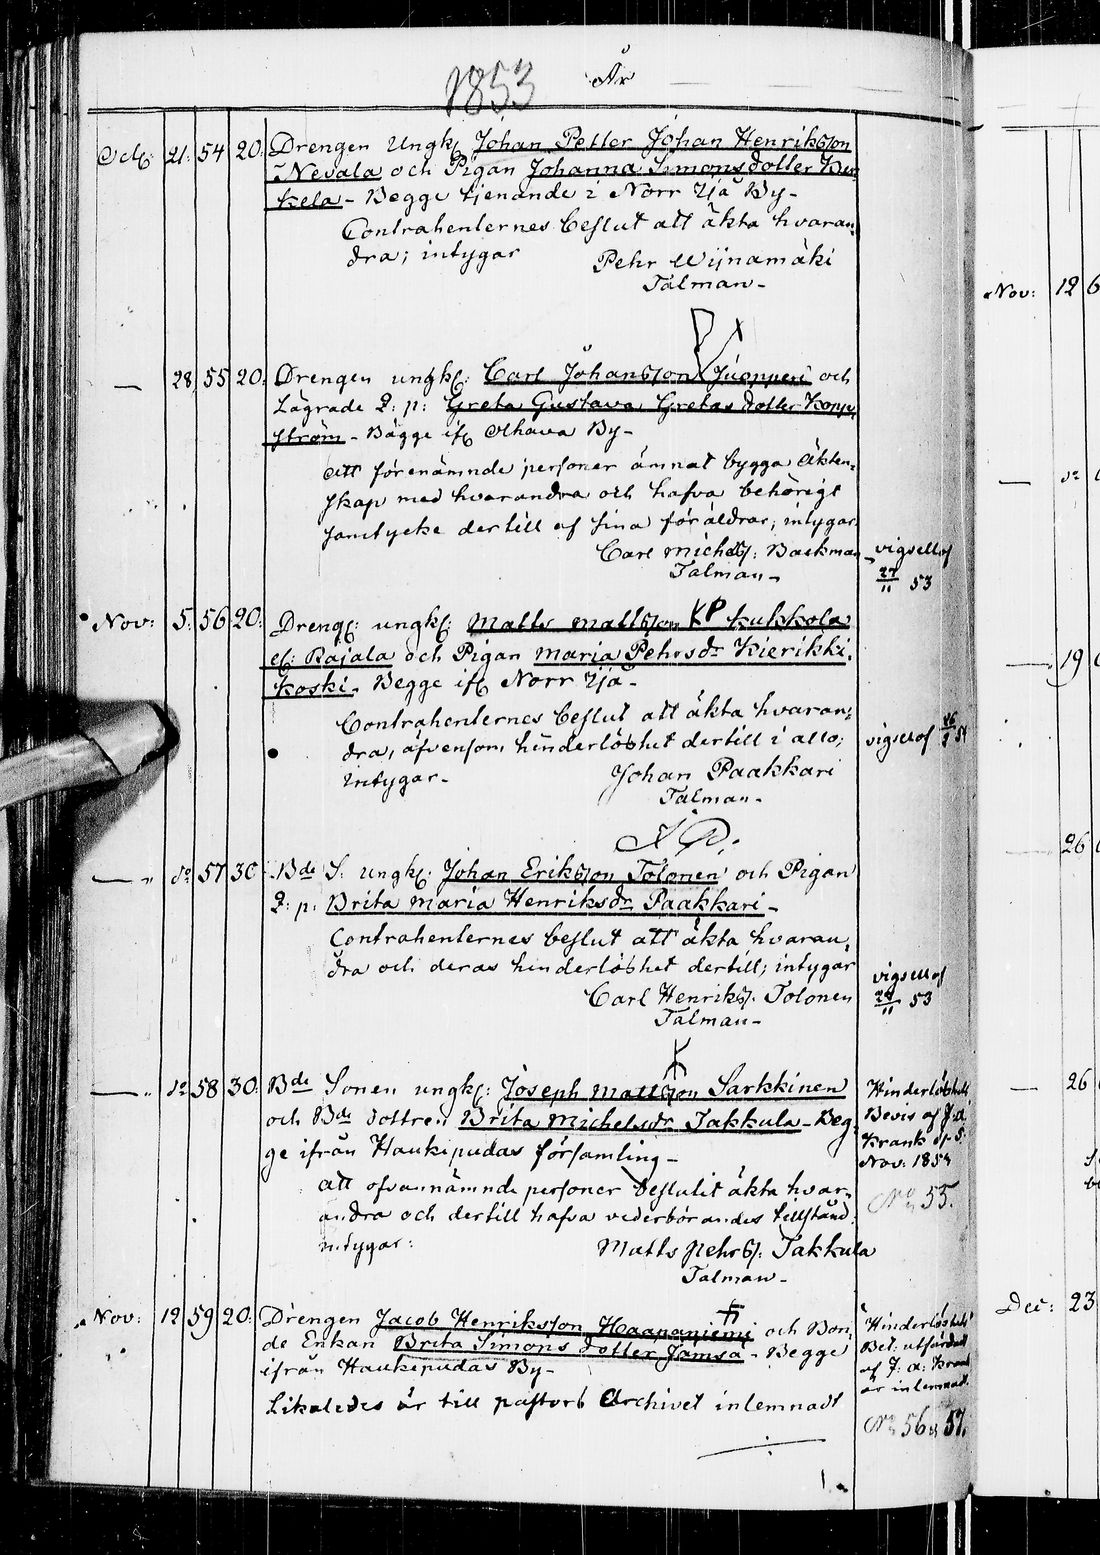 1853 År
Oct: 21. 54 20. Drengen Ungk: Johan Petter Johan Henriksson
Nevala och Pigan Johanna Simonsdotter
kela - Begge tjenande i Norr Ijå By -
Contrahenternes beslut att äkta hvaran=
dra; intygar Pehr Wijnamäki
Talman -
— 28 55 20. Drengen ungk: Carl Johansson Juopperi och
Lägrade Q: p: Greta Gustava Gretas dotter Kopp
ström - Bägge if: Olhava By -
att förenämnde personer ämnat bygga äkten=
skap med hvarandra och hafva behörigt
samtycke dertill af sina föräldrar, intygar
Carl Michels: Backman
Talman -
vigsell af
27/11 53
Nov: 5. 56 20. Drengs: ungk: Matts Mattsson KP Kukkola
el: Rajala och Pigan Maria Pehrsdr Kierikki=
koski - Begge if: Norr Ijå -
Contrahenternes beslut att äkta hvaran=
dra, äfvensom hinderlöshet dertill i allo;
intygar - Johan Paakkari
Talman -
vigsell af 26/2 54
— do 57 30 Bde S: ungk: Johan Eriksson Tolonen och Pigan
Q: p: Brita Maria Henriksdr Paakkari -
Contrahenternes beslut att äkta hvaran=
dra och deras hinderlöshet dertill; intygar
Carl Henriks: Tolonen
Talman -
vigsell af
27/11 53
— do 58 30. Bde Sonen ungk: Joseph Mattsson Sarkkinen
och Bde dottren Brita Michelsdr Jakkula - Beg=
ge ifrån Haukipudas församling -
att ofvannämnde personer beslutit äkta hvar=
andra och dertill hafva vederbörandes tillstånd,
intygar: Matts Pehrs: Jakkula
Talman -
Hinderlöshets
Bevis af
Krank d: 5
Nov: 1853
No 55.
Nov: 12 59 20. Drengen Jacob Henriksson Haapaniemi och Bon=
de Enkan Brita Simons dotter Jämsä - Begge
ifrån Haukipudas By -
Likaledes är till pastors Archivet inlemnadt
Hinderlöshets
Bet: utfärdadt
af
är inlemnadt
No 56 & 57.
Nov: 12 6
— do
— 19
— 26
— 26
Dec: 23